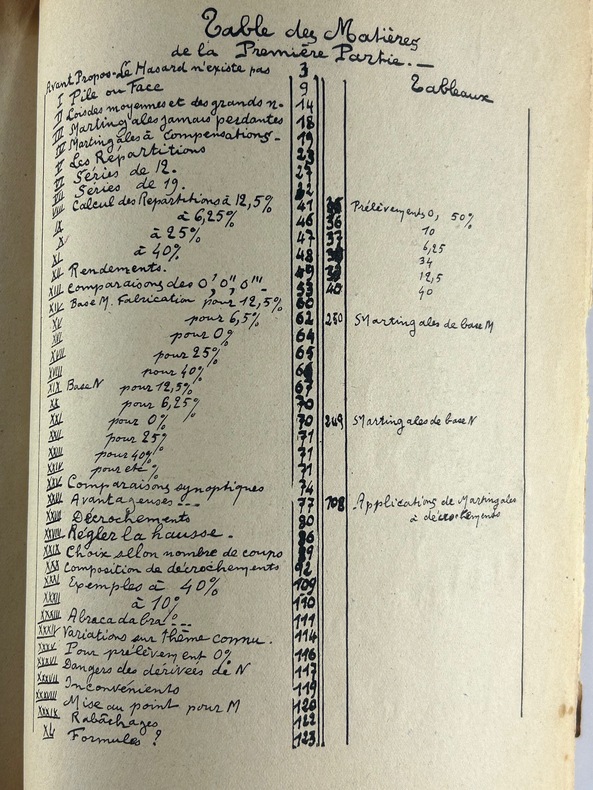 Table des Matières
de la Première Partie.—
Avant Propos-Le Hasard n'existe pas 3
Tableaux
I Pile ou Face 9
II Lois des moyennes et des grands n- 14
III Martingales jamais perdantes 18
IV Martingales à Compensations- 19
V Les Répartitions 23
VI Séries de 12. 27
VII Séries de 19.
VIII Calcul des Répartitions à 12,5% 41 Prélèvements 0, 50%
IX à 6,25% 46 36 10
X à 25% 47 37 6,25
XI à 40% 48 34
XII Rendements. 49 12,5
XIII Comparaisons des O', O", O'''- 53 40 40
XIV Base M. Fabrication pour 12,5% 60
XV pour 6,5% 62 250 Martingales de base M
XVI pour 0% 64
XVII pour 25% 65
XVIII pour 40% 66
XIX Base N pour 12,5% 67
XX pour 6,25% 70
XXI pour 0% 70 249 Martingales de base N
XXII pour 25% 71
XXIII pour 40% 71
XXIV pour etc % 71
XXV Comparaisons synoptiques 74
XXVI Avantageuses... 77 108 Applications de Martingales
à décrochements
XXVII Décrochements 80
XXVIII Régler la hausse. 86
XXIX Choix sellon nombre de coups 89
XXX Composition de décrochements 92
XXXI Exemples à 40% 109
XXXII à 10% 110
XXXIII Abracadabra... 111
XXXIV Variations sur thème connu. 114
XXXV Pour prélèvement 0% 116
XXXVI Dangers des dérivées de N 117
XXXVII Inconvénients 119
XXXVIII Mise au point pour M 120
XXXIX Rabâchages 122
XL Formules ? 123